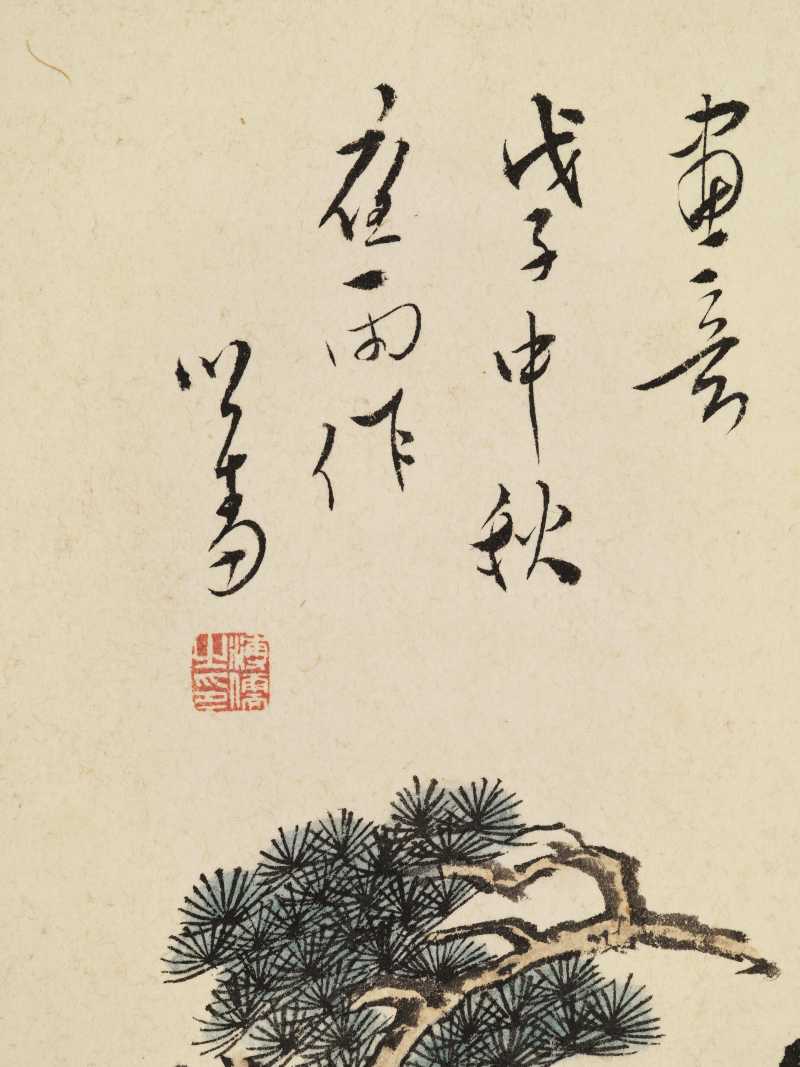 畫意
戊子中秋
雨作
心畬
溥儒之印